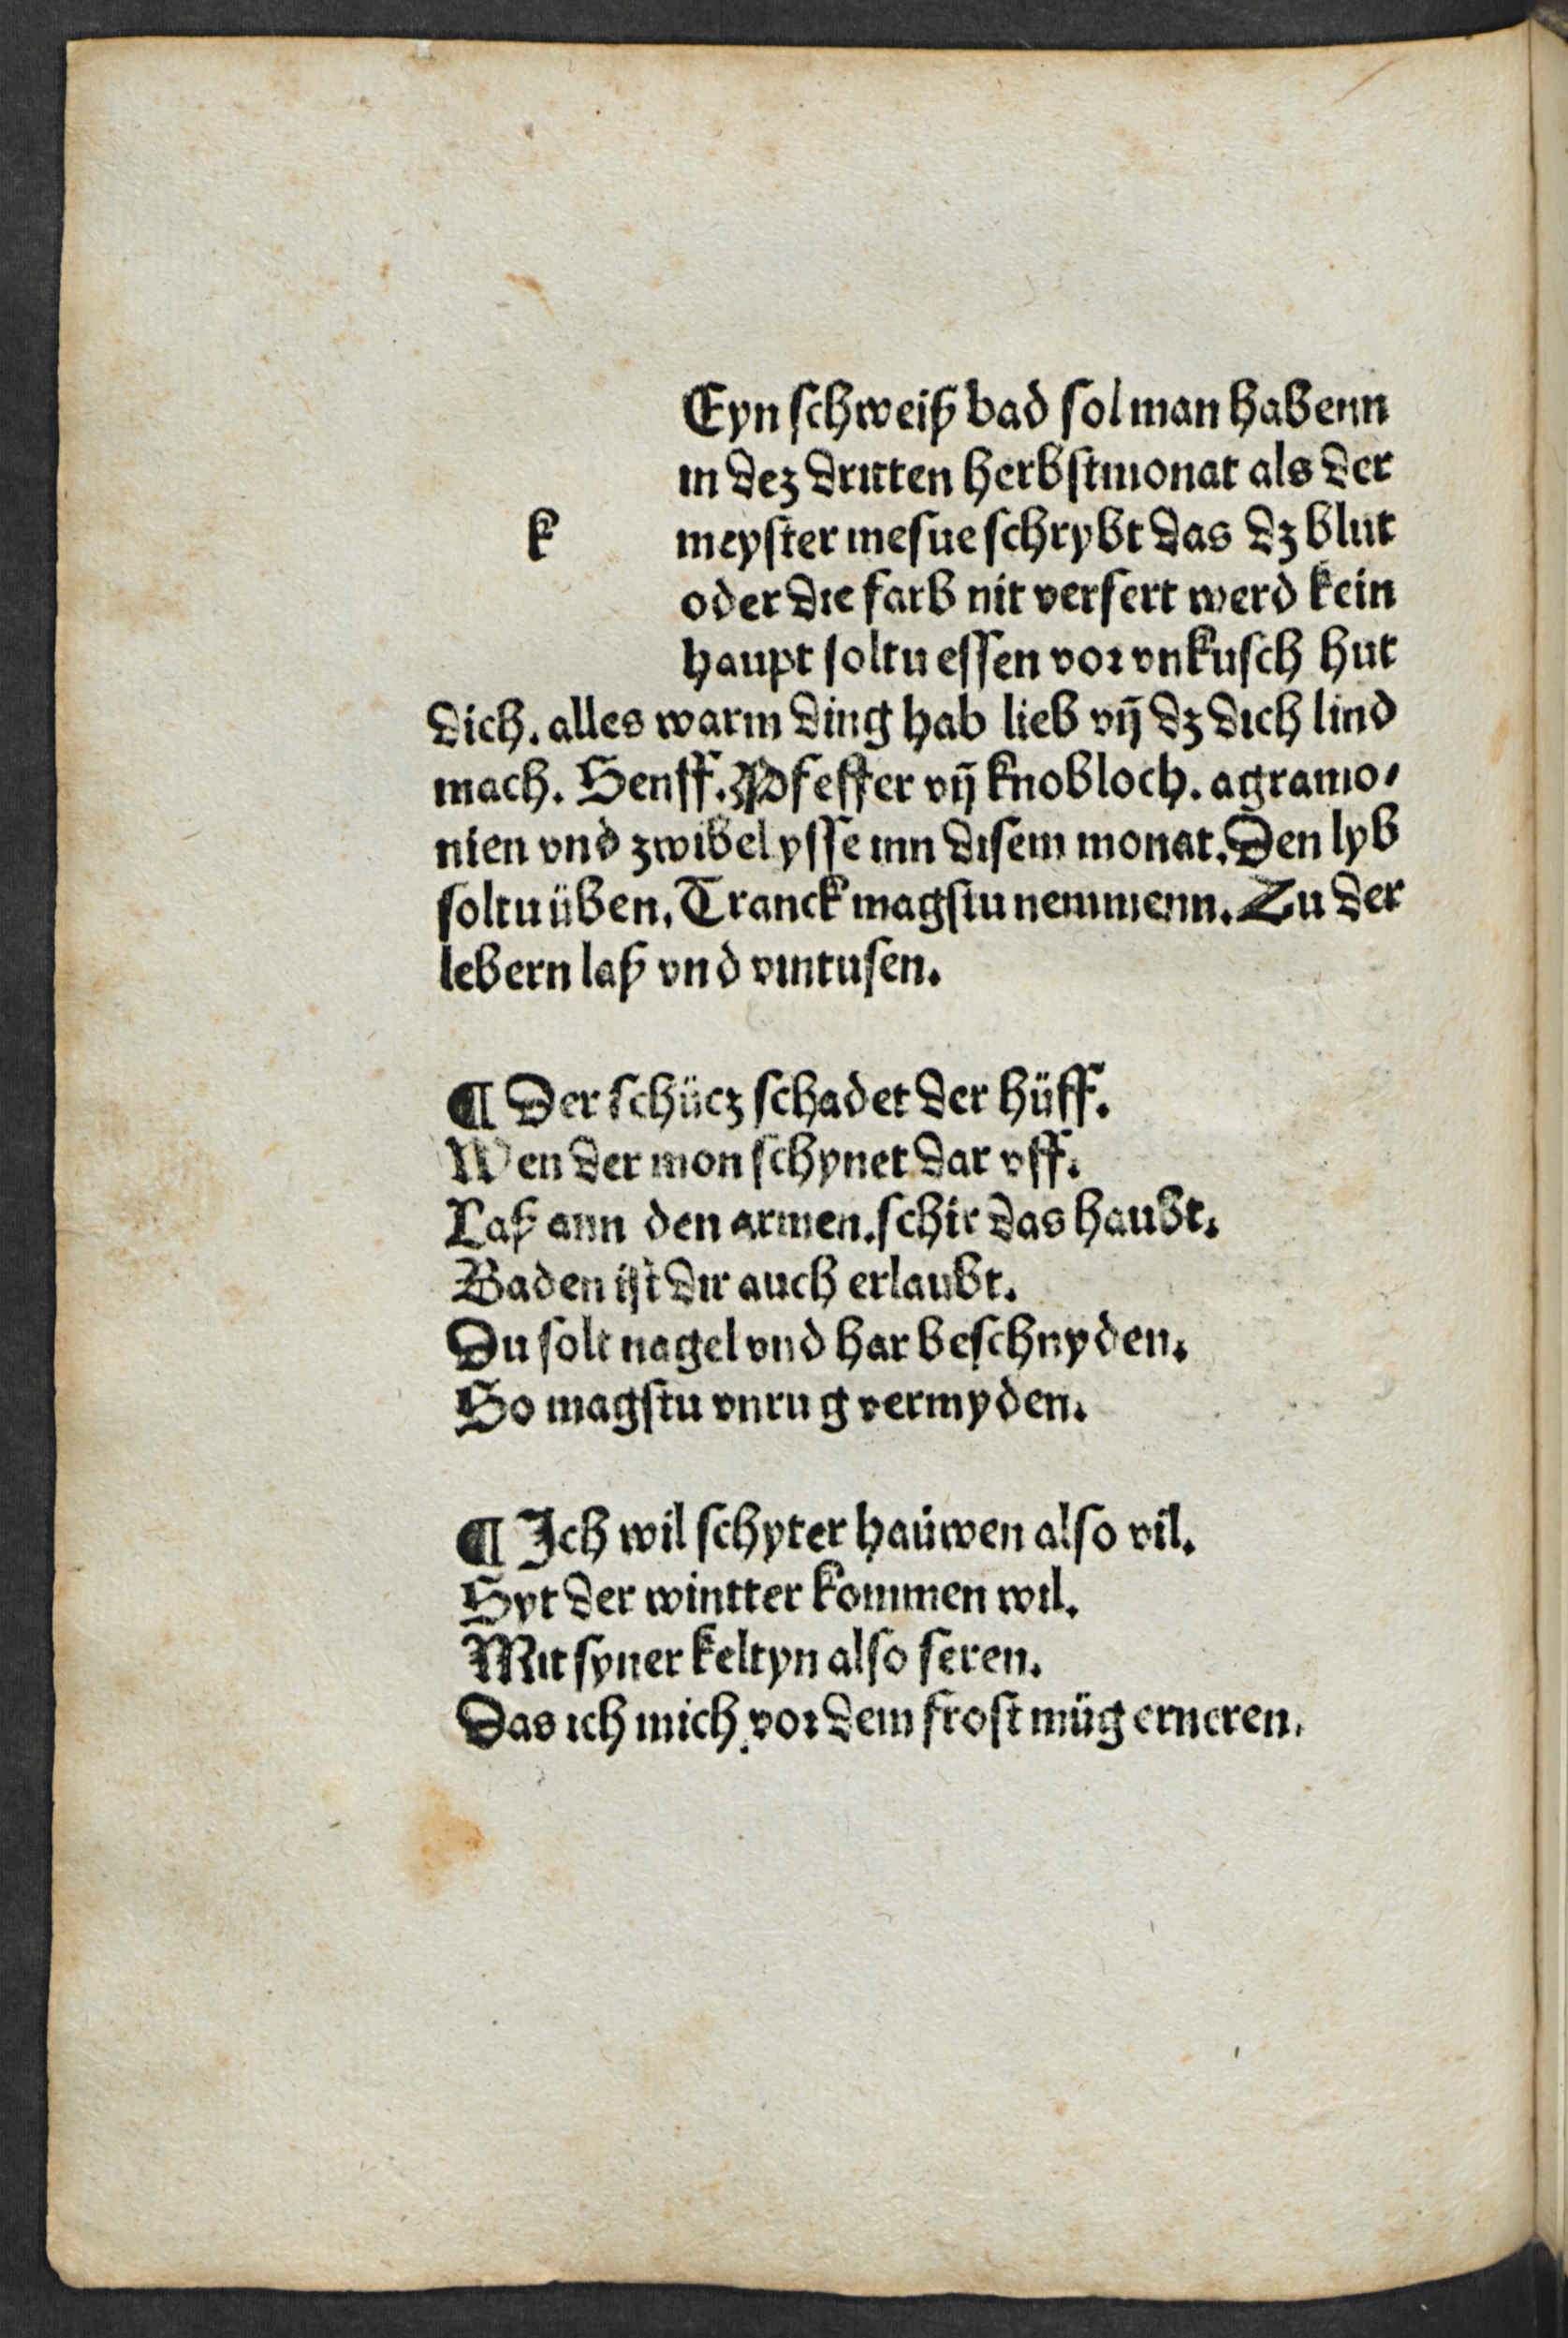 k
Eyn schweiß bad sol man habenn
in dez dritten herbstmonat als der
meyster mesue schrybt das dz blut
oder die farb nit versert werd kein
haupt soltu essen vor vnkusch hut
dich. alles warm ding hab lieb vn̄ dz dich lind
mach. Senff. Pfeffer vn̄ knobloch. agramo⸗
nien vnd zwibel ysse inn disem monat. Den lyb
soltu üben. Tranck magstu nemmenn. Zu der
lebern laß vnd vintusen.
¶ Der schücz schadet der hüff.
Wen der mon schynet dar vff.
Laß ann den armen. schir das haubt.
Baden ist dir auch erlaubt.
Du solt nagel vnd har beschnyden.
So magstu vnrug vermyden.
¶ Ich wil schyter haüwen also vil.
Syt der wintter kommen wil.
Mit syner keltyn also seren.
Das ich mich vor dem frost müg erneren.